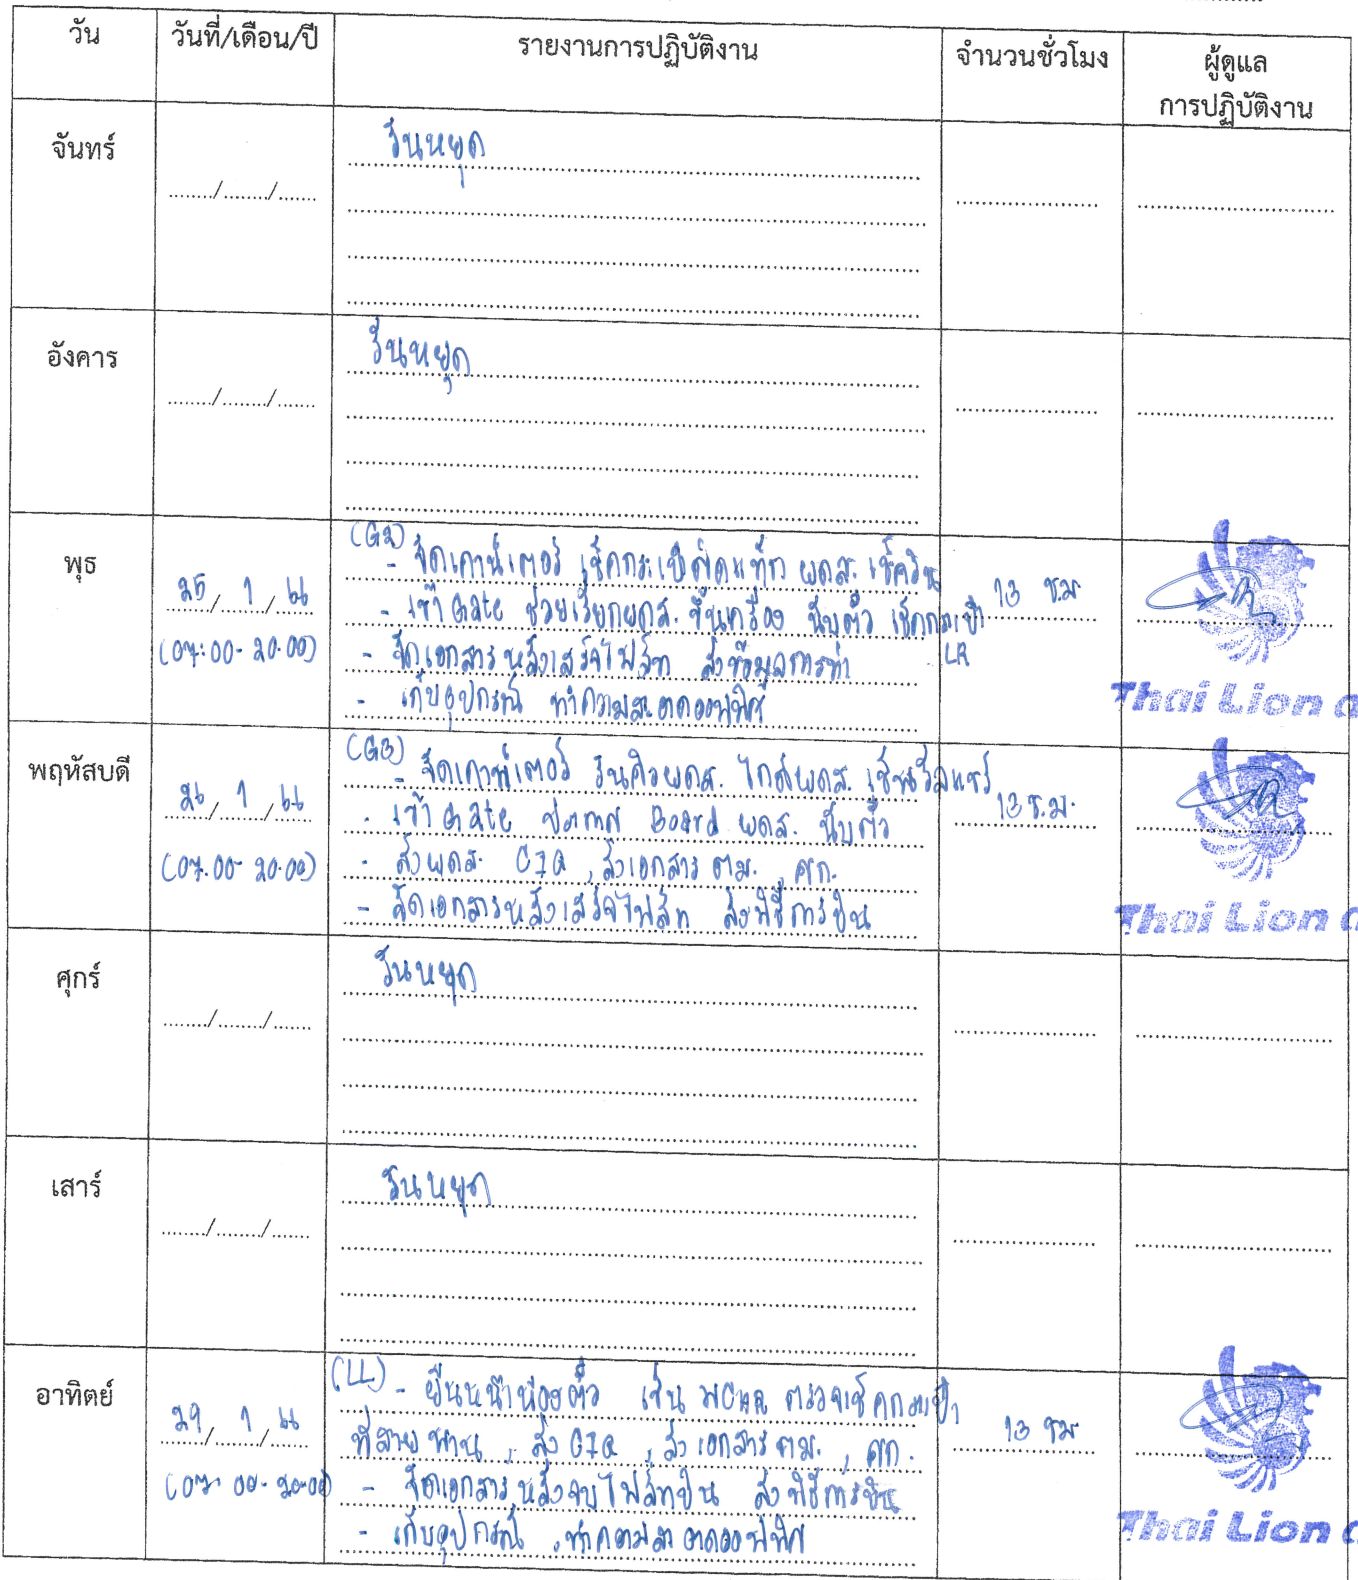 วัน วันที่/เดือน/ปี รายงานการปฏิบัติงาน จำนวนชั่วโมง ผู้ดูแล
การปฏิบัติงาน
จันทร์ ......../......../........ วันหยุด
อังคาร ......../......../........ วันหยุด
พุธ 25/1/66 (G2) - จัดเคาน์เตอร์ เช็คกระเป๋าติดแท็ก ผดส. เช็คอิน 13 ช.ม
(07:00-20.00) - เข้า Gate ช่วยเรียกผดส. ขึ้นเครื่อง นับตั๋ว เช็คกระเป๋า LR
- จัดเอกสารหลังเสร็จไฟล์ท ส่งข้อมูลการท่า
- เก็บอุปกรณ์ ทำความสะอาดออฟฟิศ
Thai Lion
พฤหัสบดี 26/1/66 (G3) - จัดเคาน์เตอร์ รันคิวผดส. ไกด์ผดส. เข็นวีลแชร์ 13 ช.ม.
- เข้า Gate ประกาศ Board ผดส. นับตั๋ว
(07.00-20.00) - ส่งผดส. CIQ , ส่งเอกสาร ตม. , ศก.
- จัดเอกสารหลังเสร็จไฟล์ท ส่งพิธีการบิน
Thai Lion
ศุกร์ ......../......../........ วันหยุด
เสาร์ ......../......../........ วันหยุด
อาทิตย์ 29/1/66 (LL) - ยืนหน้าห้องตั๋ว เข็น WCHR ตรวจเช็คกระเป๋า 13 ชม
ที่สายพาน , ส่ง CIQ , ส่งเอกสาร ตม. , ศก.
(07.00-20.00) - จัดเอกสารหลังจบไฟล์ทบิน ส่งพิธีการบิน
- เก็บอุปกรณ์ , ทำความสะอาดออฟฟิศ
Thai Lion